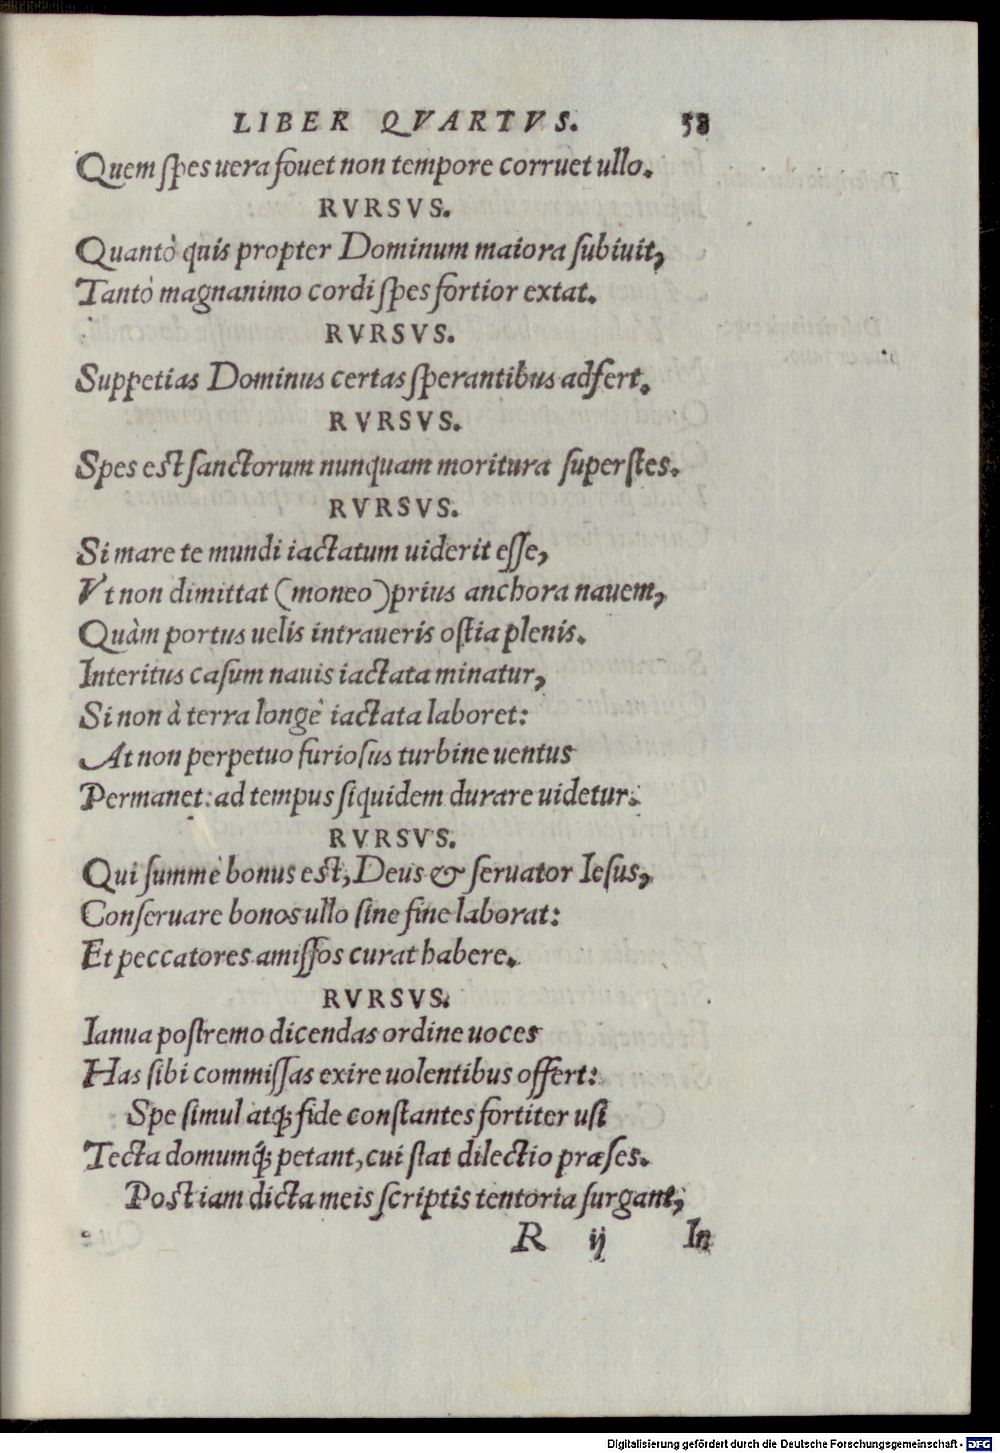 LIBER QVARTVS. 58
Quem spes uera fouet non tempore corruet ullo.
RVRSVS.
Quantò quis propter Dominum maiora subiuit,
Tantò magnanimo cordi spes fortior extat.
RVRSVS.
Suppetias Dominus certas sperantibus adfert.
RVRSVS.
Spes est sanctorum nunquam moritura superstes.
RVRSVS.
Si mare te mundi iactatum uiderit esse,
Vt non dimittat (moneo) prius anchora nauem,
Quàm portus uelis intraueris ostia plenis.
Interitus casum nauis iactata minatur,
Si non à terra longè iactata laboret:
At non perpetuo furiosus turbine uentus
Permanet: ad tempus siquidem durare uidetur.
RVRSVS.
Qui summè bonus est, Deus & seruator Iesus,
Conseruare bonos ullo sine fine laborat:
Et peccatores amissos curat habere.
RVRSVS.
Ianua postremo dicendas ordine uoces
Has sibi commissas exire uolentibus offert:
Spe simul atq; fide constantes fortiter usi
Tecta domumq́; petant, cui stat dilectio præses.
Post iam dicta meis scriptis tentoria surgant,
R ij In
Digitalisierung gefördert durch die Deutsche Forschungsgemeinschaft - DFG